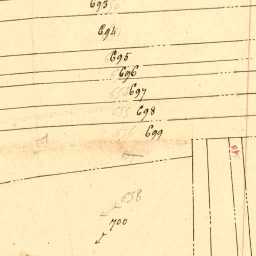 693
694
695
696
697
698
699
700